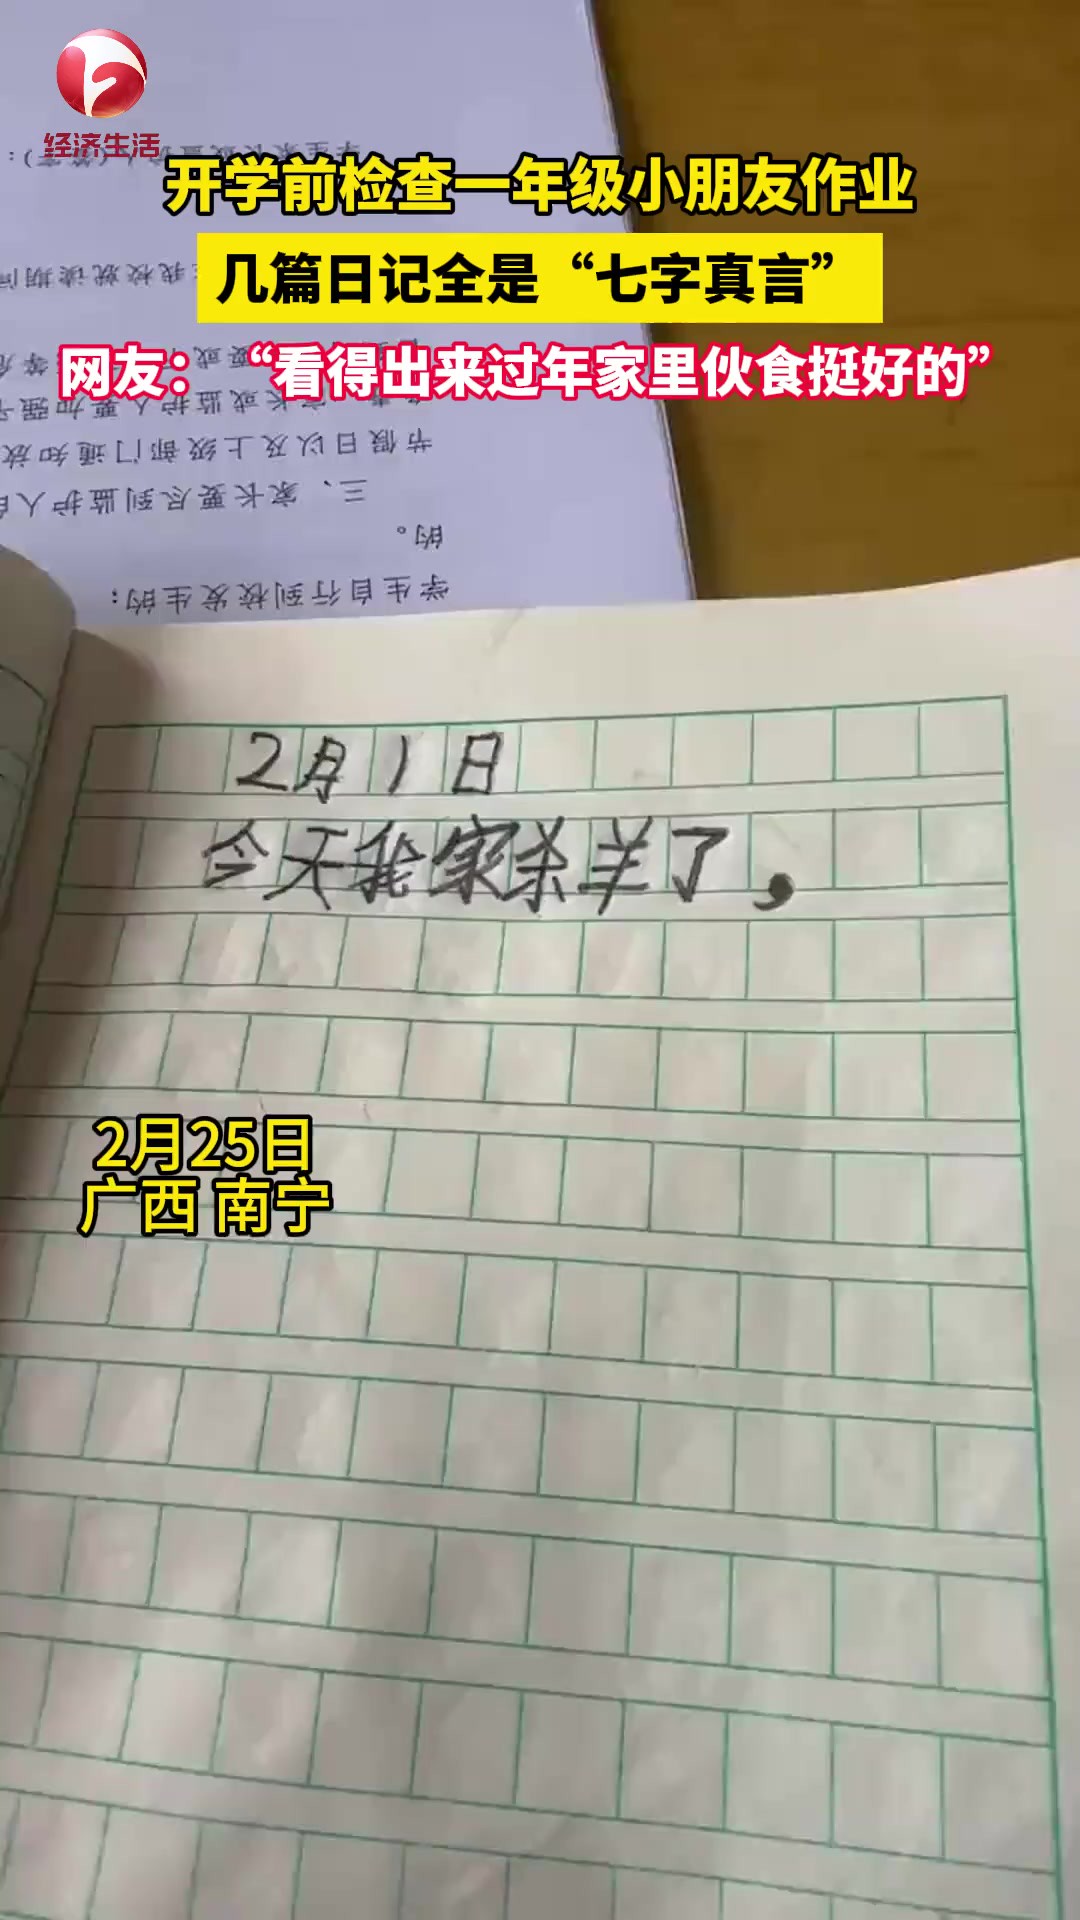 经济生活
开学前检查一年级小朋友作业
几篇日记全是“七字真言”
网友：“看得出来过年家里伙食挺好的”
学生自行到校发生的：
的。
三、家长要尽到监护人
节假日以及上级部门通知放
家长或监护人要加强
我校就读期间
2月1日
今天我家杀羊了，
2月25日
广西 南宁